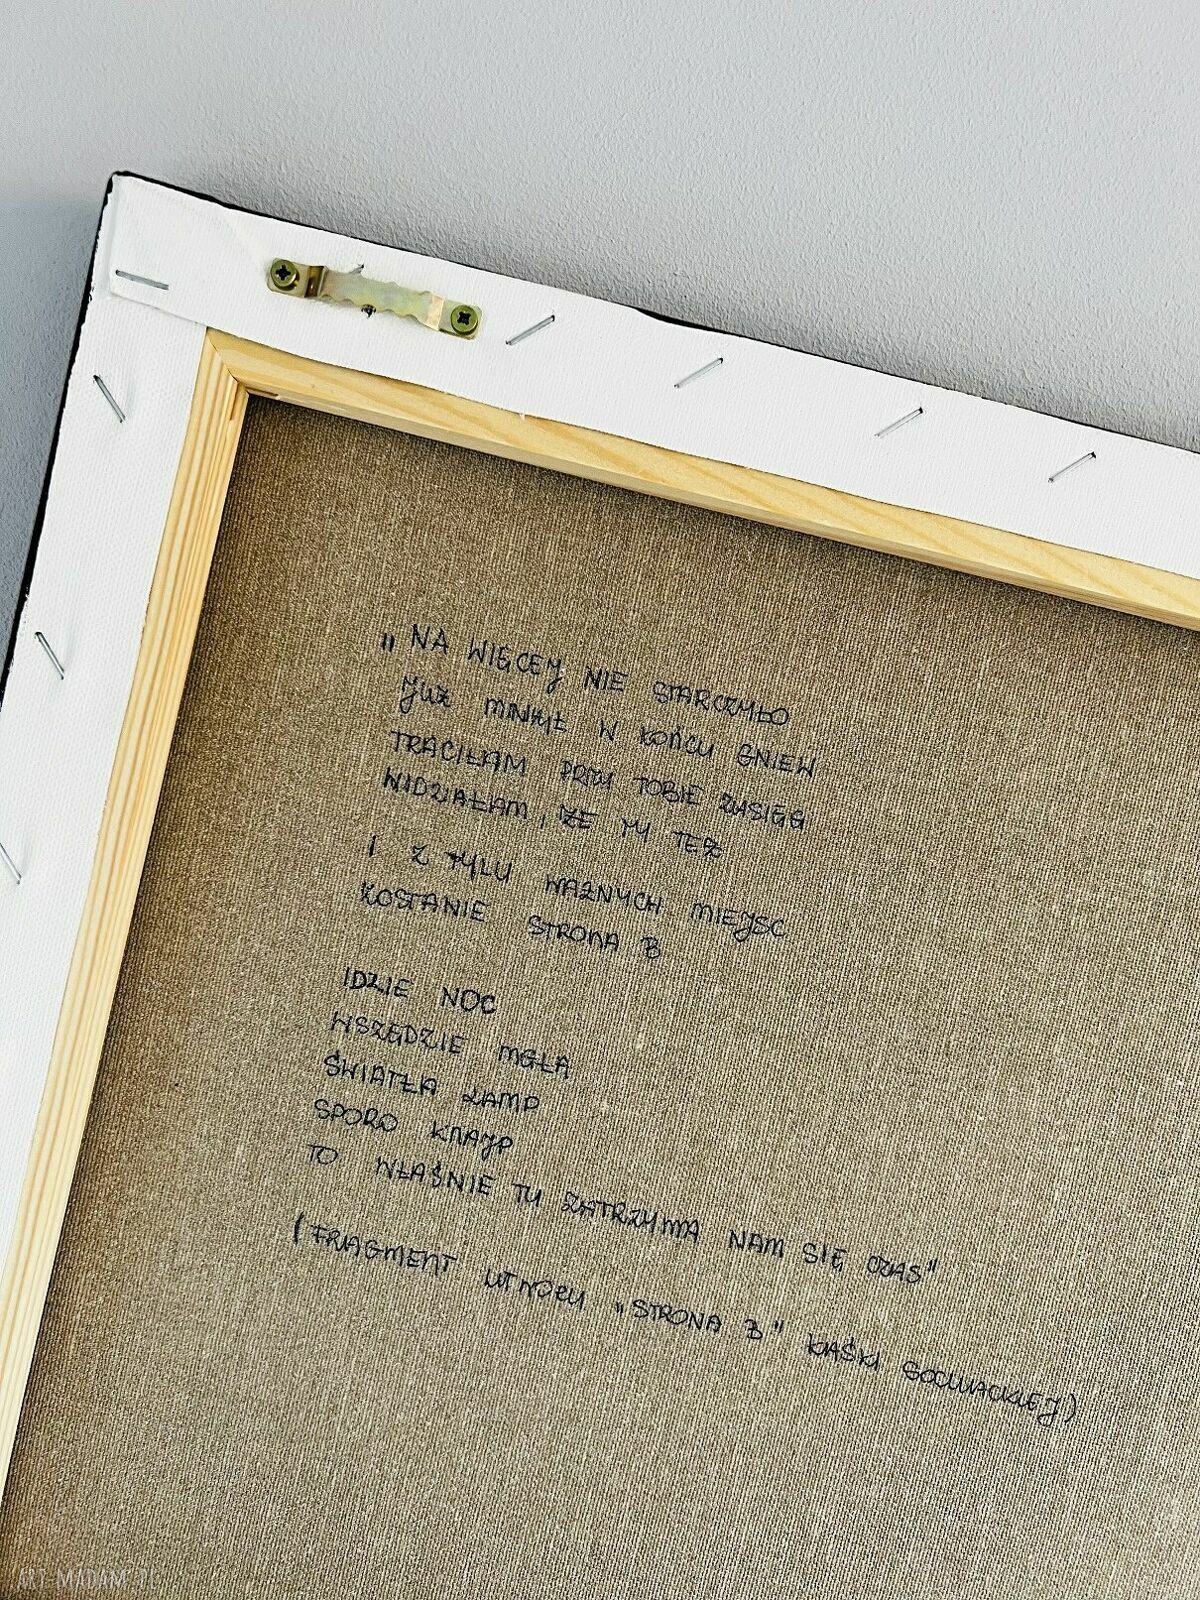 „NA WIĘCEJ NIE STARCZYŁO
JUŻ MINĄŁ W KOŃCU GNIEW
TRACIŁAM PRZY TOBIE ZASIĘG
WIDZIAŁAM, ŻE TY TEŻ
I Z TYLU WAŻNYCH MIEJSC
ZOSTANIE STRONA B
IDZIE NOC
WSZĘDZIE MGŁA
ŚWIATŁA LAMP
SPORO KNAJP
TO WŁAŚNIE TU ZATRZYMA NAM SIĘ CZAS"
(FRAGMENT UTWORU „STRONA B" KAŚKI SOCHACKIEJ)
ART-MADAM.PL